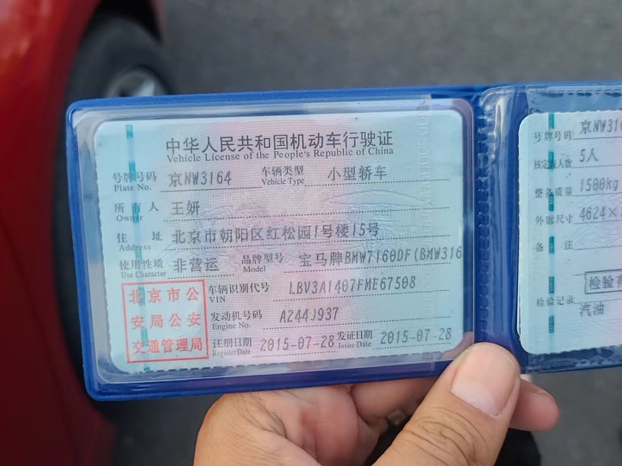 中华人民共和国机动车行驶证
Vehicle License of the People's Republic of China
号牌号码 京NW3164 车辆类型 小型轿车
Plate No. Vehicle Type
所有人 王妍
Owner
住址 北京市朝阳区红松园1号楼15号
Address
使用性质 非营运 品牌型号 宝马牌BMW7160DF(BMW316
Use Character Model
车辆识别代号 LBV3A1407FME67508
VIN
发动机号码 A244J937
Engine No.
注册日期 2015-07-28 发证日期 2015-07-28
Register Date Issue Date
北京市公
安局公安
交通管理局
号牌号码 京NW316
核定载人数 5人
整备质量 1500kg
外廓尺寸 4624×
备注
检验有
检验记录
汽油